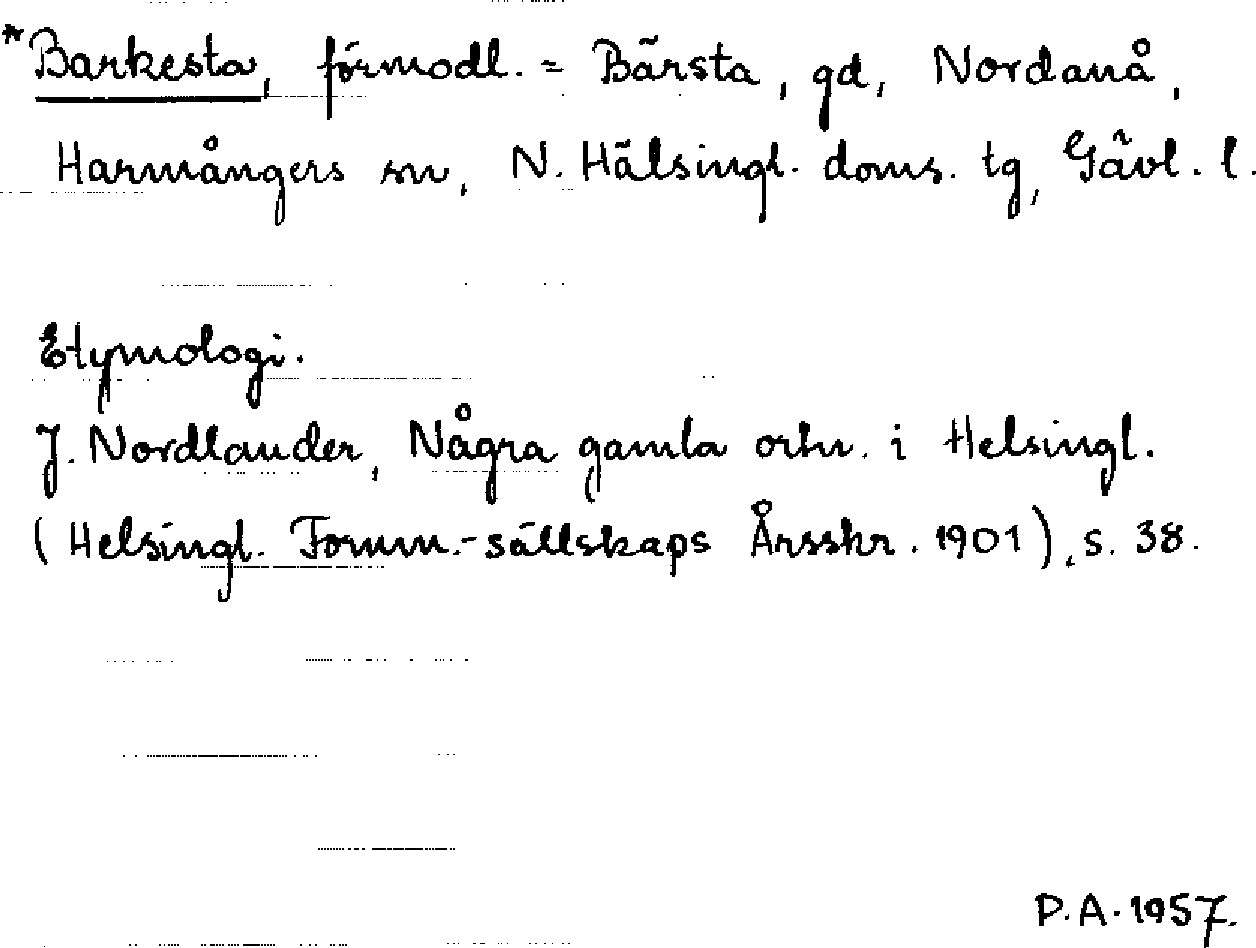 *Barkesta, förmodl. = Bärsta, gd, Nordanå,
Harmångers sn, N. Hälsingl. doms. tg, Gävl. l.
Etymologi.
J. Nordlander, Några gamla ortn. i Helsingl.
(Helsingl. Fornm.-sällskaps Årsskr. 1901), s. 38.
P.A. 1957.